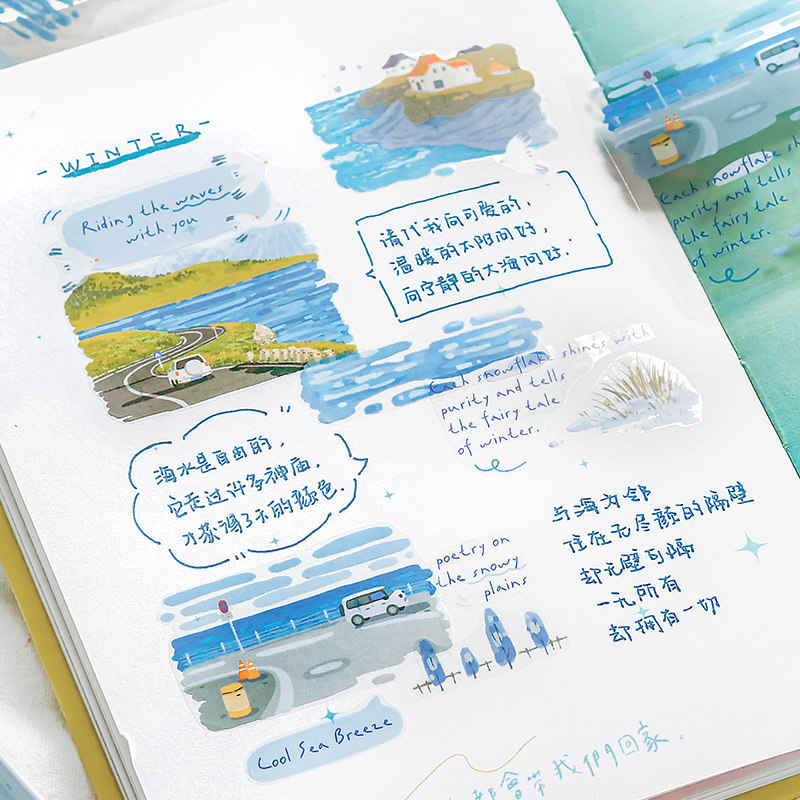 - WINTER -
Riding the waves
with you
请代我向可爱的，
温暖的太阳问好，
向宁静的大海问好.
Each snowflake shines with
purity and tells
the fairy tale
of winter.
海水是自由的，
它走过许多神庙，
才获得了天的颜色.
poetry on
the snowy
plains
与海为邻
住在无尽颜的隔壁
却无壁可隔
一无所有
却拥有一切
Cool Sea Breeze
都會带我們回家。
Each snowflake
purity and tells
the fairy tale
of winter.